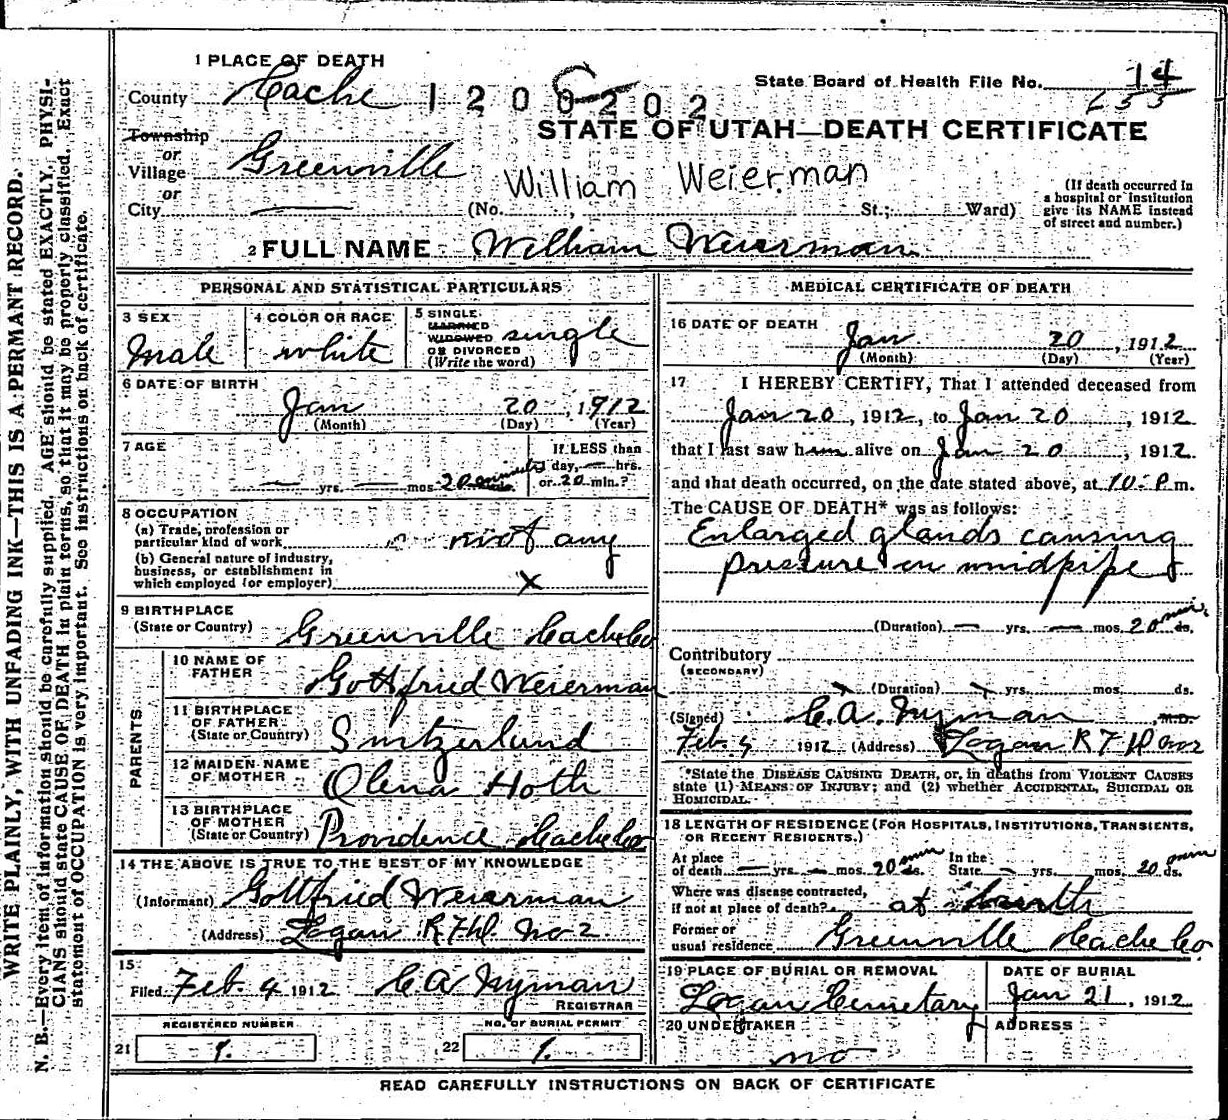 WRITE PLAINLY, WITH UNFADING INK—THIS IS A PERMANT RECORD.
N. B.—Every item of information should be carefully supplied. AGE should be stated EXACTLY, PHYSI-
CIANS should state CAUSE OF DEATH in plain terms, so that it may be properly classified. Exact
statement of OCCUPATION is very important. See instructions on back of certificate.
1 PLACE OF DEATH
County Cache
1200202
State Board of Health File No. 14
STATE OF UTAH—DEATH CERTIFICATE
Township
or
Village Greenville
or
City
William Weierman
(No. , St.; Ward)
(If death occurred in
a hospital or institution
give its NAME instead
of street and number.)
2 FULL NAME William Weierman
PERSONAL AND STATISTICAL PARTICULARS
3 SEX
Male
4 COLOR OR RACE
white
5 SINGLE,
MARRIED
WIDOWED
OR DIVORCED
(Write the word)
single
6 DATE OF BIRTH
Jan 20, 1912
(Month) (Day) (Year)
7 AGE
yrs. mos. 20 minutes ds.
If LESS than
day, hrs.
or 20 min.?
8 OCCUPATION
(a) Trade, profession or
particular kind of work not any
(b) General nature of industry,
business, or establishment in
which employed (or employer) x
9 BIRTHPLACE
(State or Country) Greenville Cache Co
PARENTS
10 NAME OF
FATHER Gottfried Weierman
11 BIRTHPLACE
OF FATHER
(State or Country) Switzerland
12 MAIDEN NAME
OF MOTHER Olena Hoth
13 BIRTHPLACE
OF MOTHER
(State or Country) Providence Cache Co
14 THE ABOVE IS TRUE TO THE BEST OF MY KNOWLEDGE
(Informant) Gottfried Weierman
(Address) Logan R F D No 2.
15
Filed Feb. 4 1912 C A Nyman
REGISTRAR
REGISTERED NUMBER
21 1.
NO. OF BURIAL PERMIT
22 1.
MEDICAL CERTIFICATE OF DEATH
16 DATE OF DEATH
Jan 20, 1912
(Month) (Day) (Year)
17 I HEREBY CERTIFY, That I attended deceased from
Jan 20, 1912, to Jan 20, 1912
that I last saw him alive on Jan 20, 1912
and that death occurred, on the date stated above, at 10 P m.
The CAUSE OF DEATH* was as follows:
Enlarged glands causing
pressure on windpipe
(Duration) yrs. mos. 20 min. ds.
Contributory
(SECONDARY)
(Duration) yrs. mos. ds.
(Signed) C. A. Nyman M.D.
Feb. 4 1912 (Address) Logan R F D No 2
*State the DISEASE CAUSING DEATH, or, in deaths from VIOLENT CAUSES
state (1) MEANS OF INJURY; and (2) whether ACCIDENTAL, SUICIDAL OR
HOMICIDAL.
18 LENGTH OF RESIDENCE (FOR HOSPITALS, INSTITUTIONS, TRANSIENTS,
OR RECENT RESIDENTS.)
At place
of death yrs. mos. 20 min ds.
In the
State yrs. mos. 20 min ds.
Where was disease contracted,
if not at place of death? at birth
Former or
usual residence Greenville Cache Co
19 PLACE OF BURIAL OR REMOVAL
Logan Cemetary
DATE OF BURIAL
Jan 21, 1912
20 UNDERTAKER
no
ADDRESS
READ CAREFULLY INSTRUCTIONS ON BACK OF CERTIFICATE